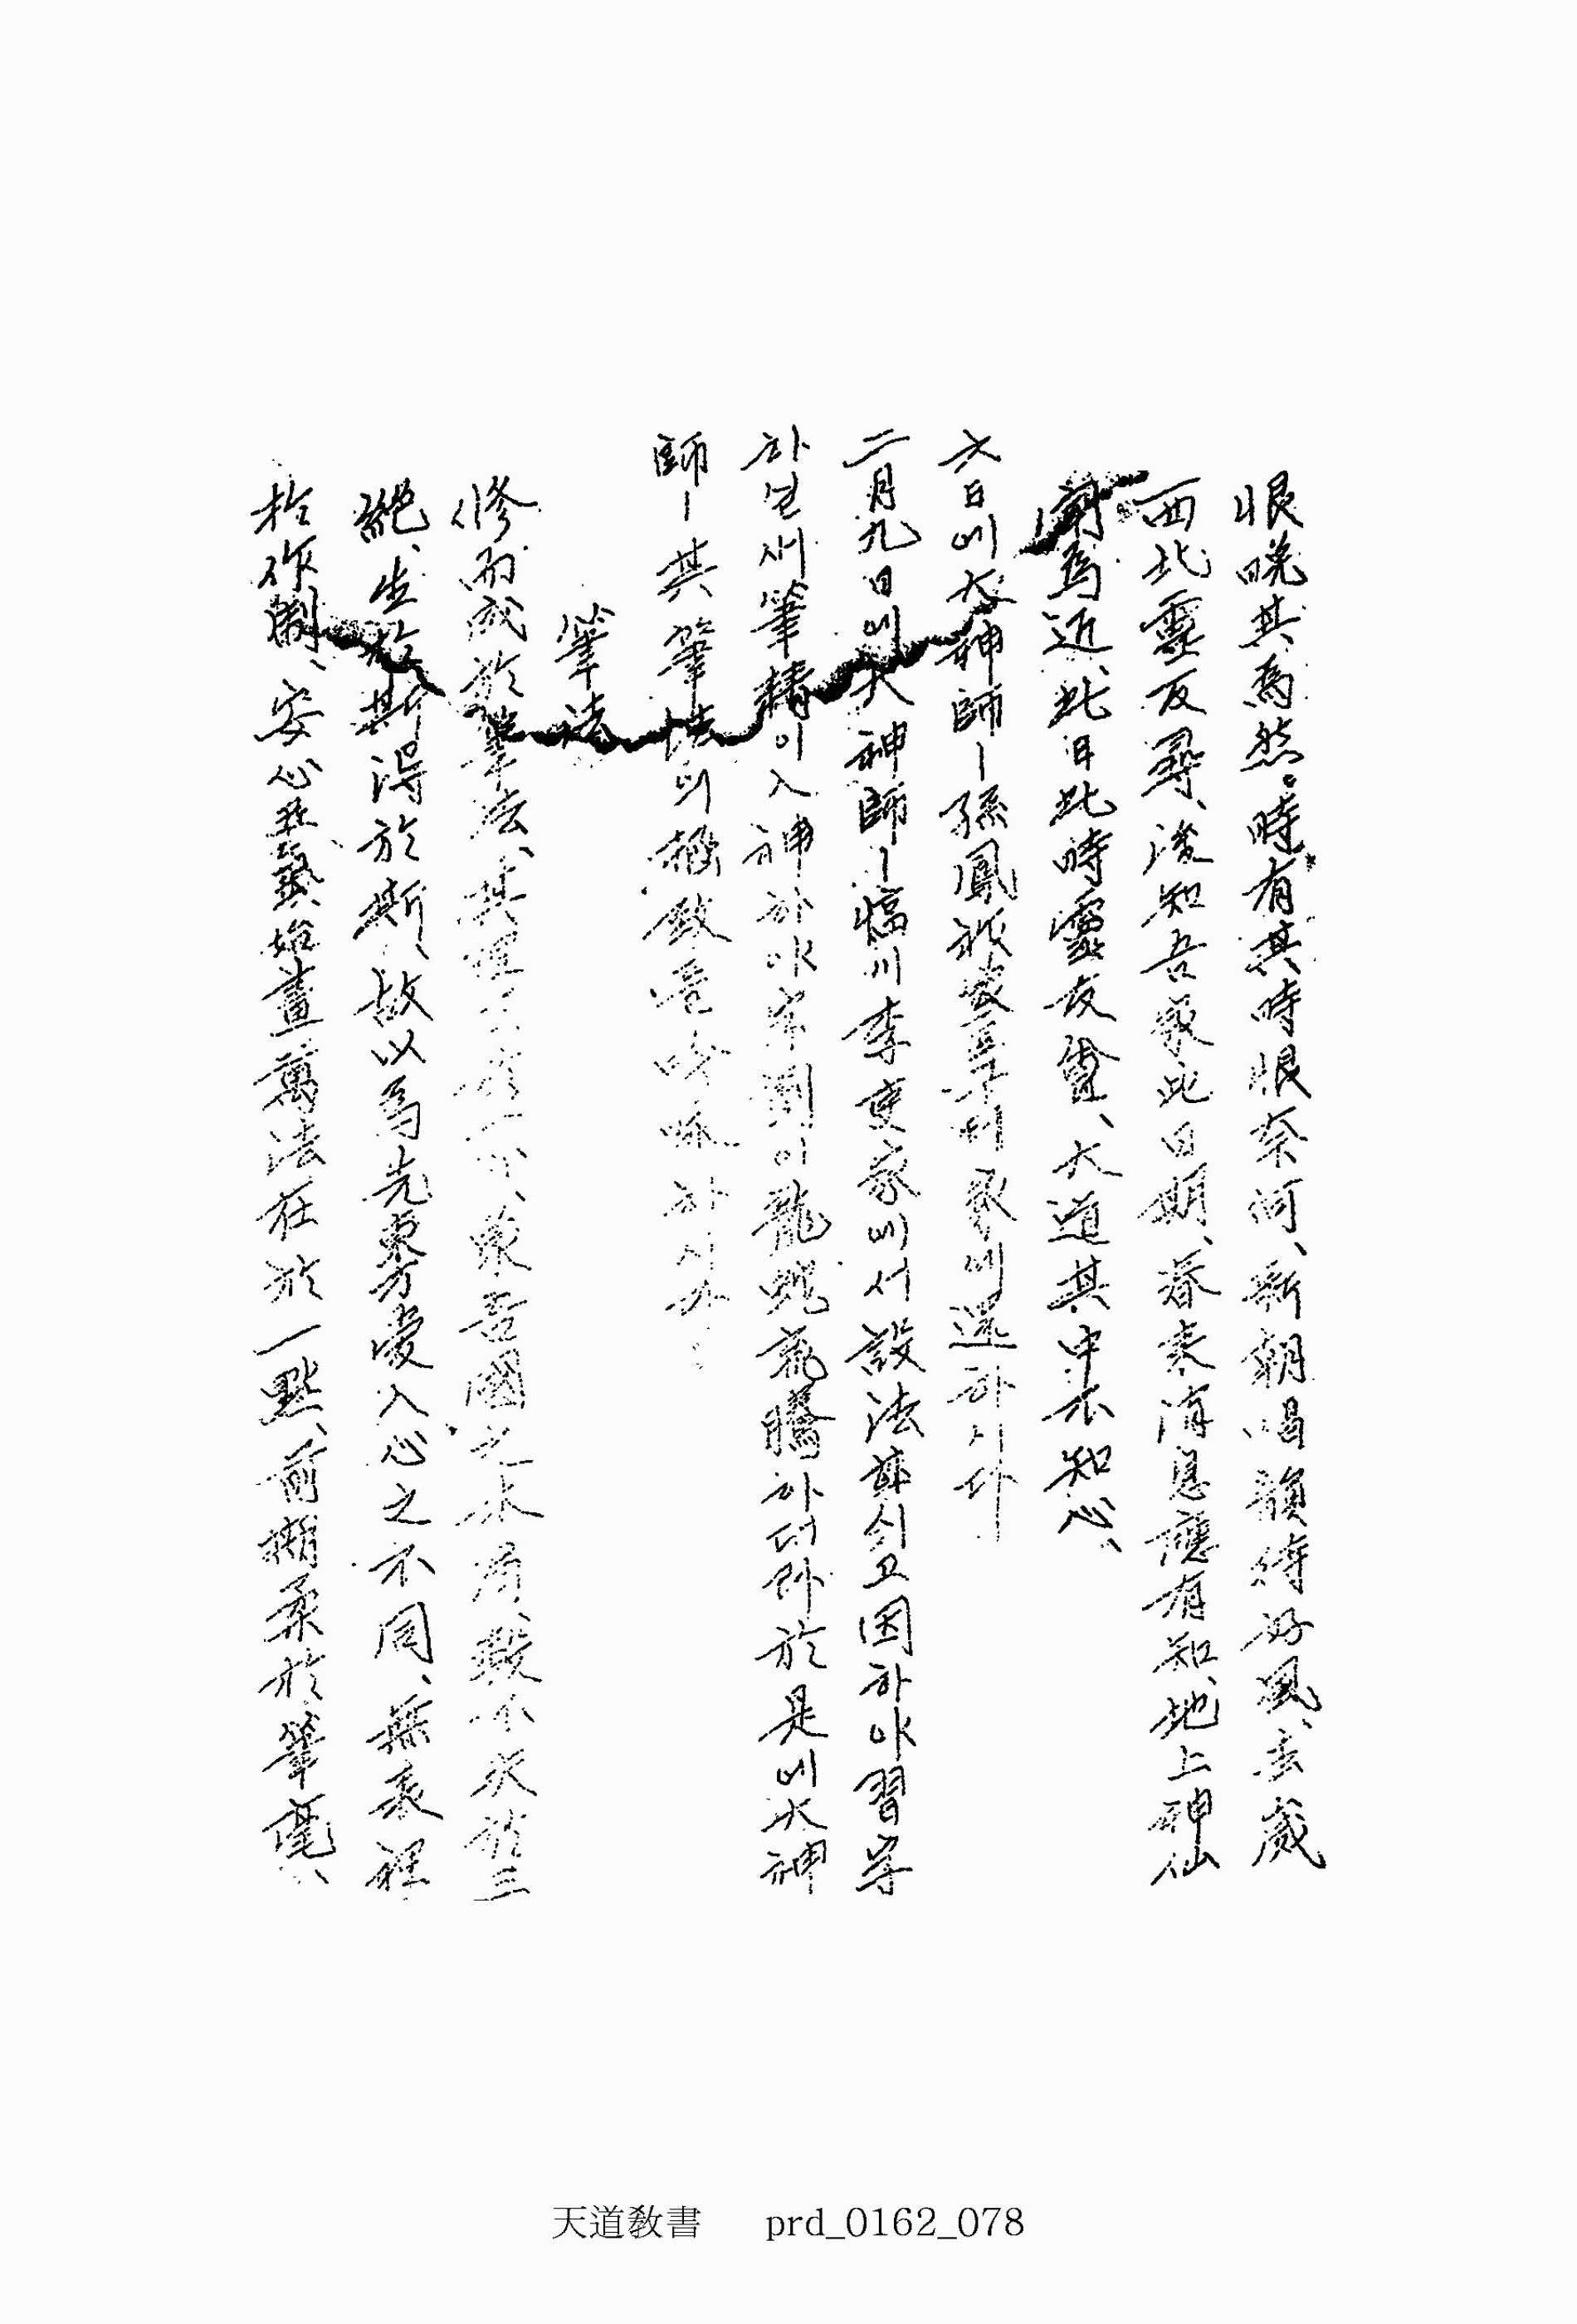 恨晩其爲然。時有其時恨奈何、新朝唱韻待好風、去歲
西北靈友尋、後知吾家此日期、春來消息應有知、地上神仙
聞爲近、此日此時靈友會、大道其中不知心、
六日에大神師ㅣ孫鳳祚家로브터 家에還하시다
二月九日에大神師ㅣ臨川李吏家에셔設法하시고因하야習字
하실새筆精이入神하야字劃이龍蛇飛騰하더라於是에大神
師ㅣ其筆法의極致를吟咏하시다
筆法
修而成於筆法、其理在於一心、象吾國之木局、數不失於三
絶、生於斯得於斯、故以爲先東方愛人心之不同、無表裡
於作制、安心正氣始畫萬法在於一點、前期柔於筆毫、